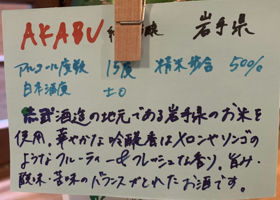 AKABU 純 醸 岩手県
アルコール度数 15度 精米歩合 50%
日本酒度 ±0
赤武酒造の地元である岩手県のお米を
使用。華やかな吟醸香はメロンやリンゴの
ようなフルーティー&フレッシュな香り。旨み・
酸味・苦味のバランスがとれたお酒です。